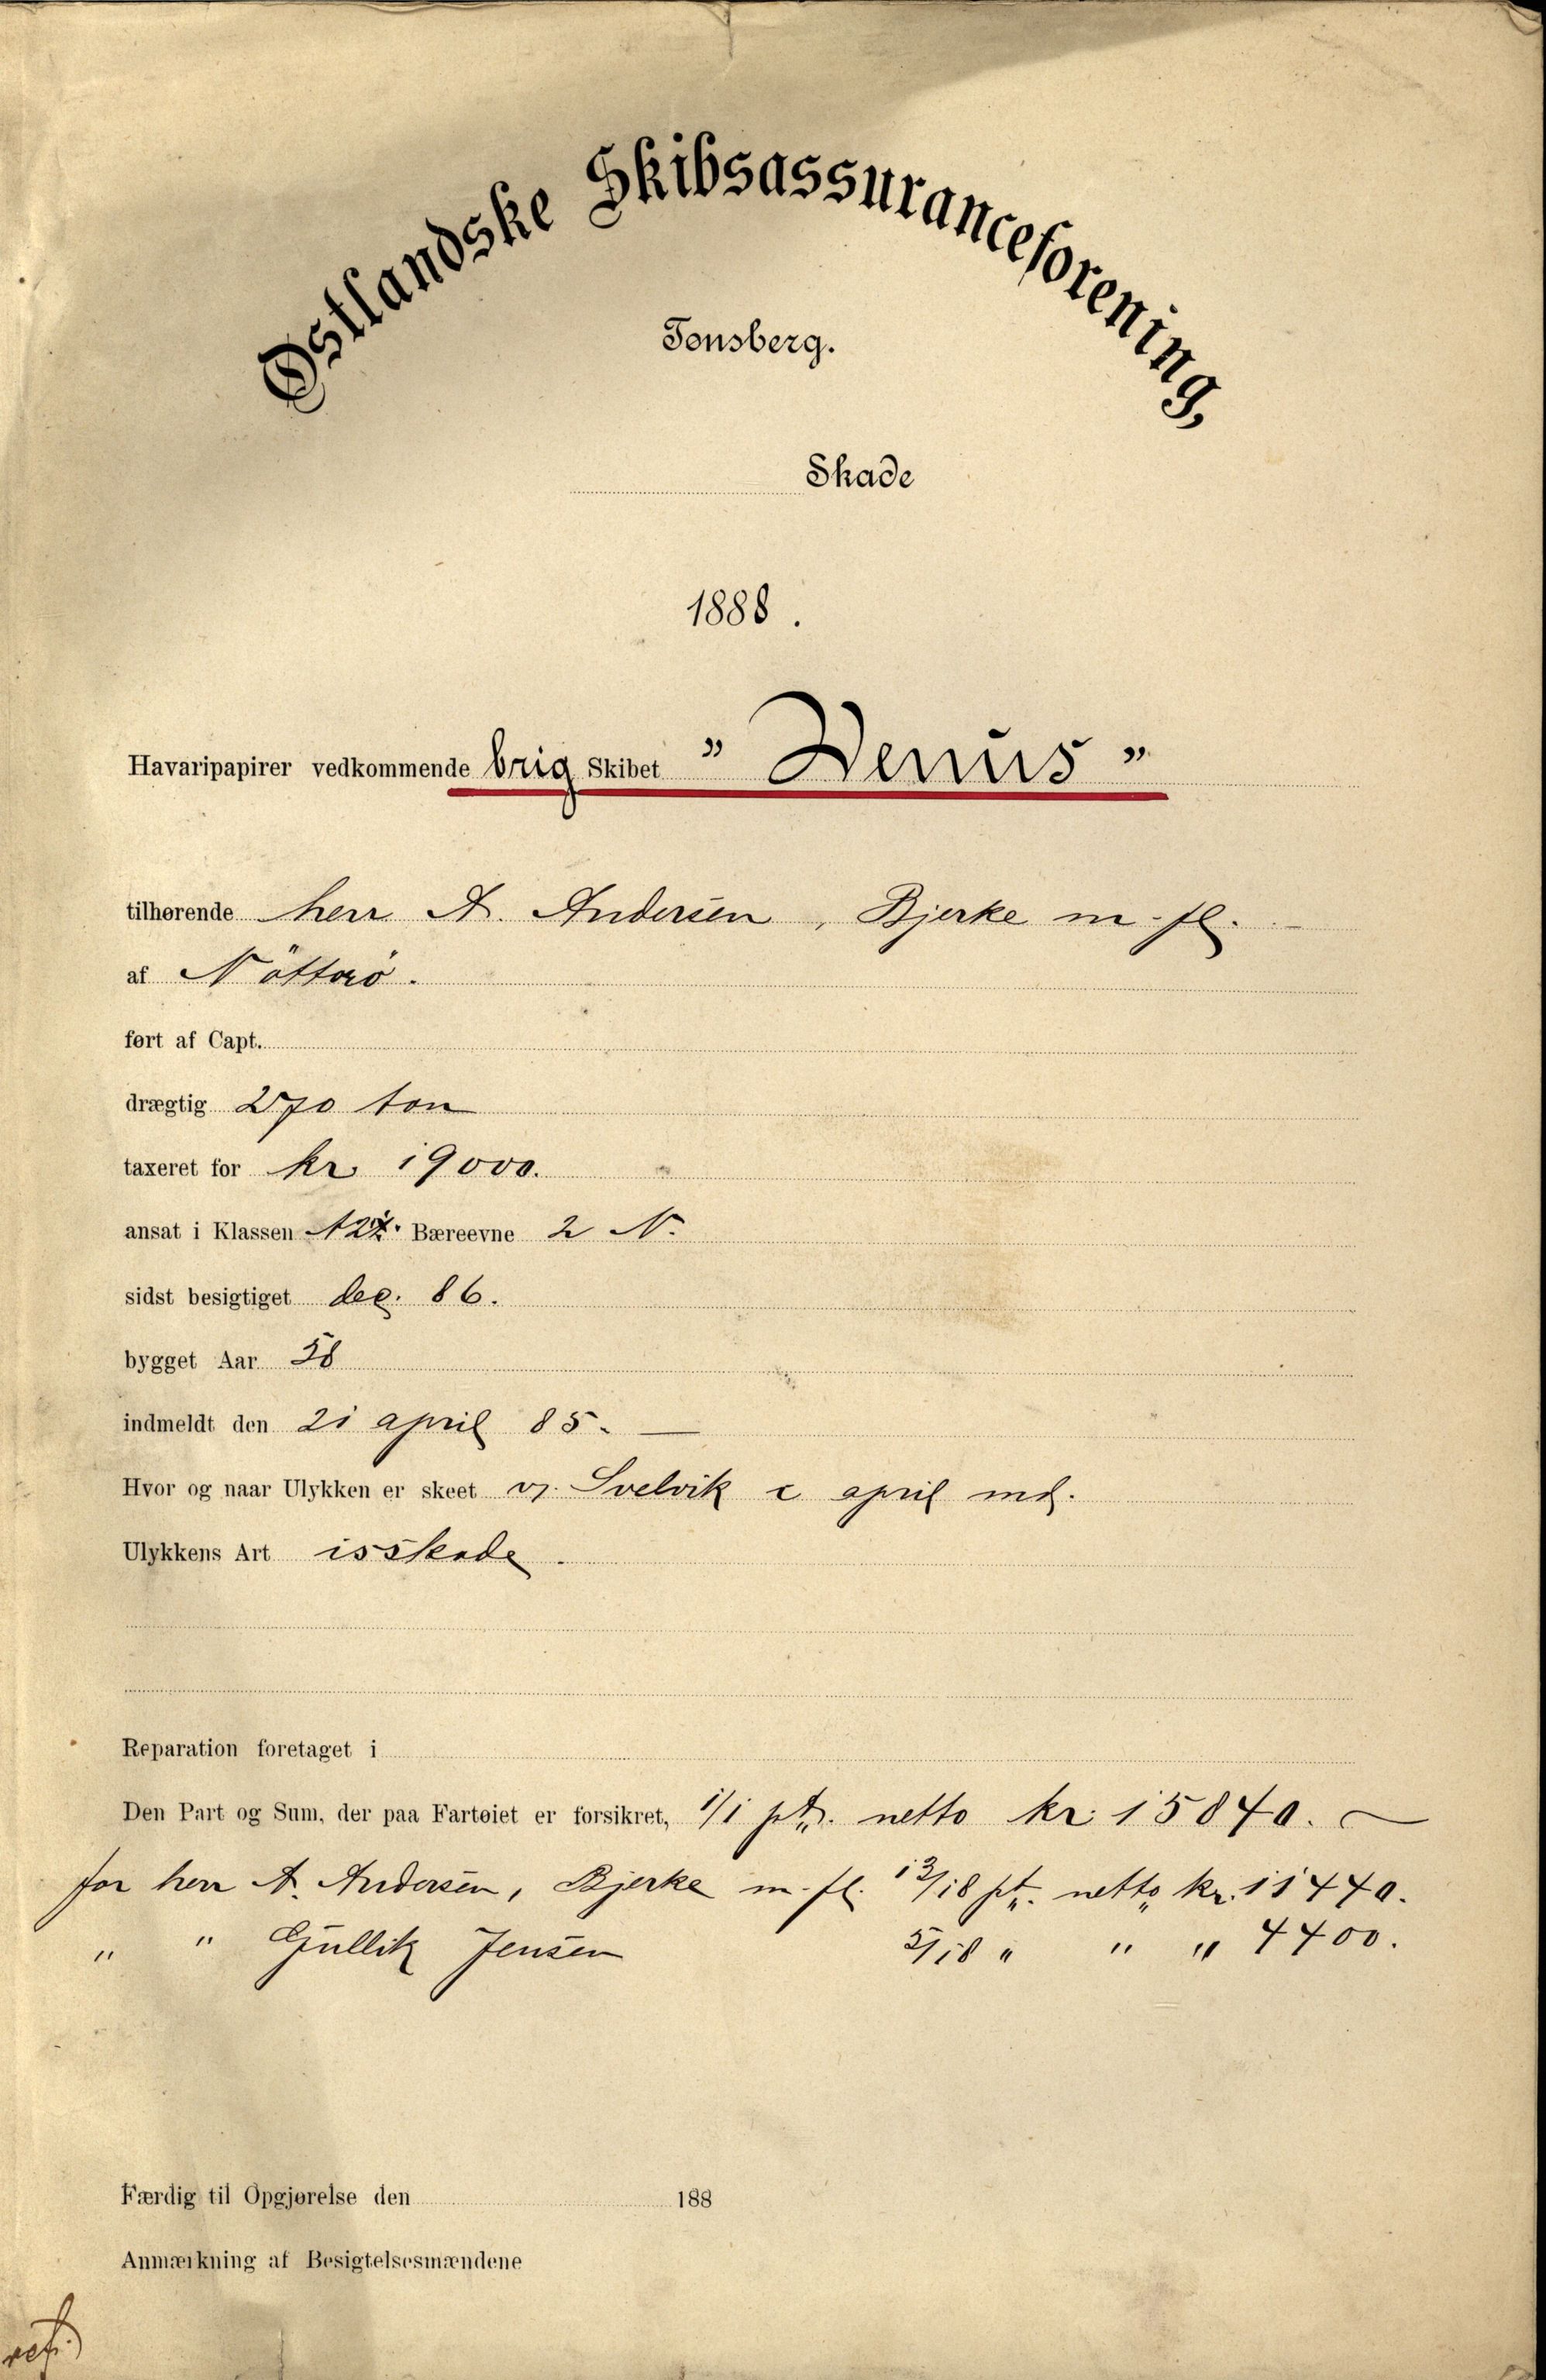 Østlandske Skibsassuranceforening,
Tønsberg.
Skade
1888.
Havaripapirer vedkommende brig Skibet "Venus"
tilhørende herr A. Andersen, Bjerke m. fl.
af Nötterö.
ført af Capt.
drægtig 270 ton
taxeret for kr 19000.
ansat i Klassen Bæreevne 2 N.
sidst besigtiget dec. 86.
bygget Aar 58
indmeldt den 21 april 85. —
Hvor og naar Ulykken er skeet v. Svelvik i april md.
Ulykkens Art isskade.
Reparation foretaget i
Den Part og Sum, der paa Fartøiet er forsikret, 1/1 pt. netto kr. 15840. —
for herr A. Andersen, Bjerke m. fl. 13/18 pt. netto kr. 11440.
" " Gullik Jensen 5/18 " " " 4400.
Færdig til Opgjørelse den 188
Anmærkning af Besigtelsesmændene